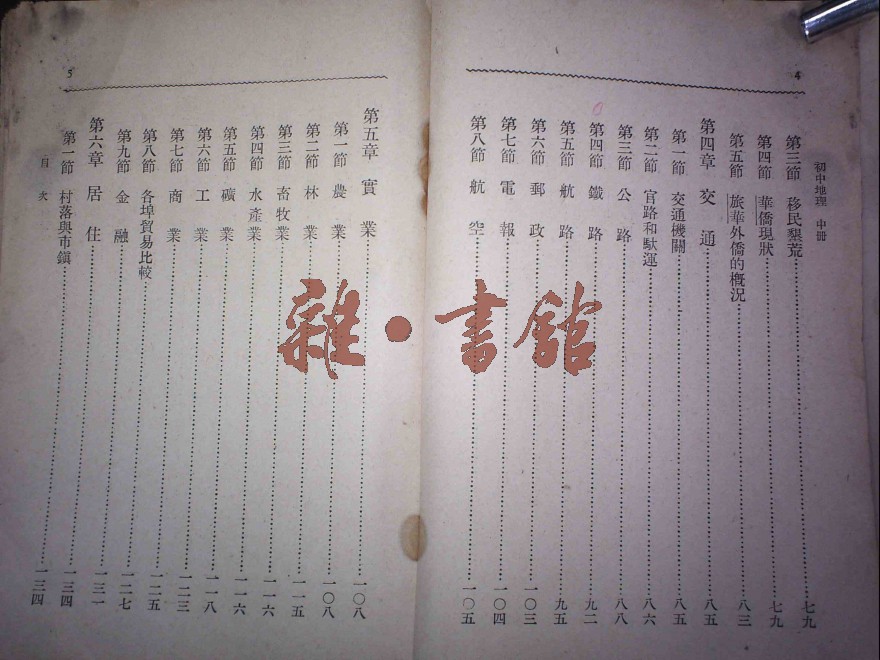 初中地理 中冊
4
第三節 移民墾荒……七九
第四節 華僑現狀……七九
第五節 旅華外僑的概況……八三
第四章 交通……八五
第一節 交通機關……八五
第二節 官路和馱運……八六
第三節 公路……八八
第四節 鐵路……九二
第五節 航路……九五
第六節 郵政……一〇三
第七節 電報……一〇四
第八節 航空……一〇五
5
第五章 實業……一〇八
第一節 農業……一〇八
第二節 林業……一一五
第三節 畜牧業……一一六
第四節 水產業……一一六
第五節 礦業……一一八
第六節 工業……一二三
第七節 商業……一二五
第八節 各埠貿易比較……一二七
第九節 金融……一三一
第六章 居住……一三四
第一節 村落與市鎮……一三四
目次
雜·書館